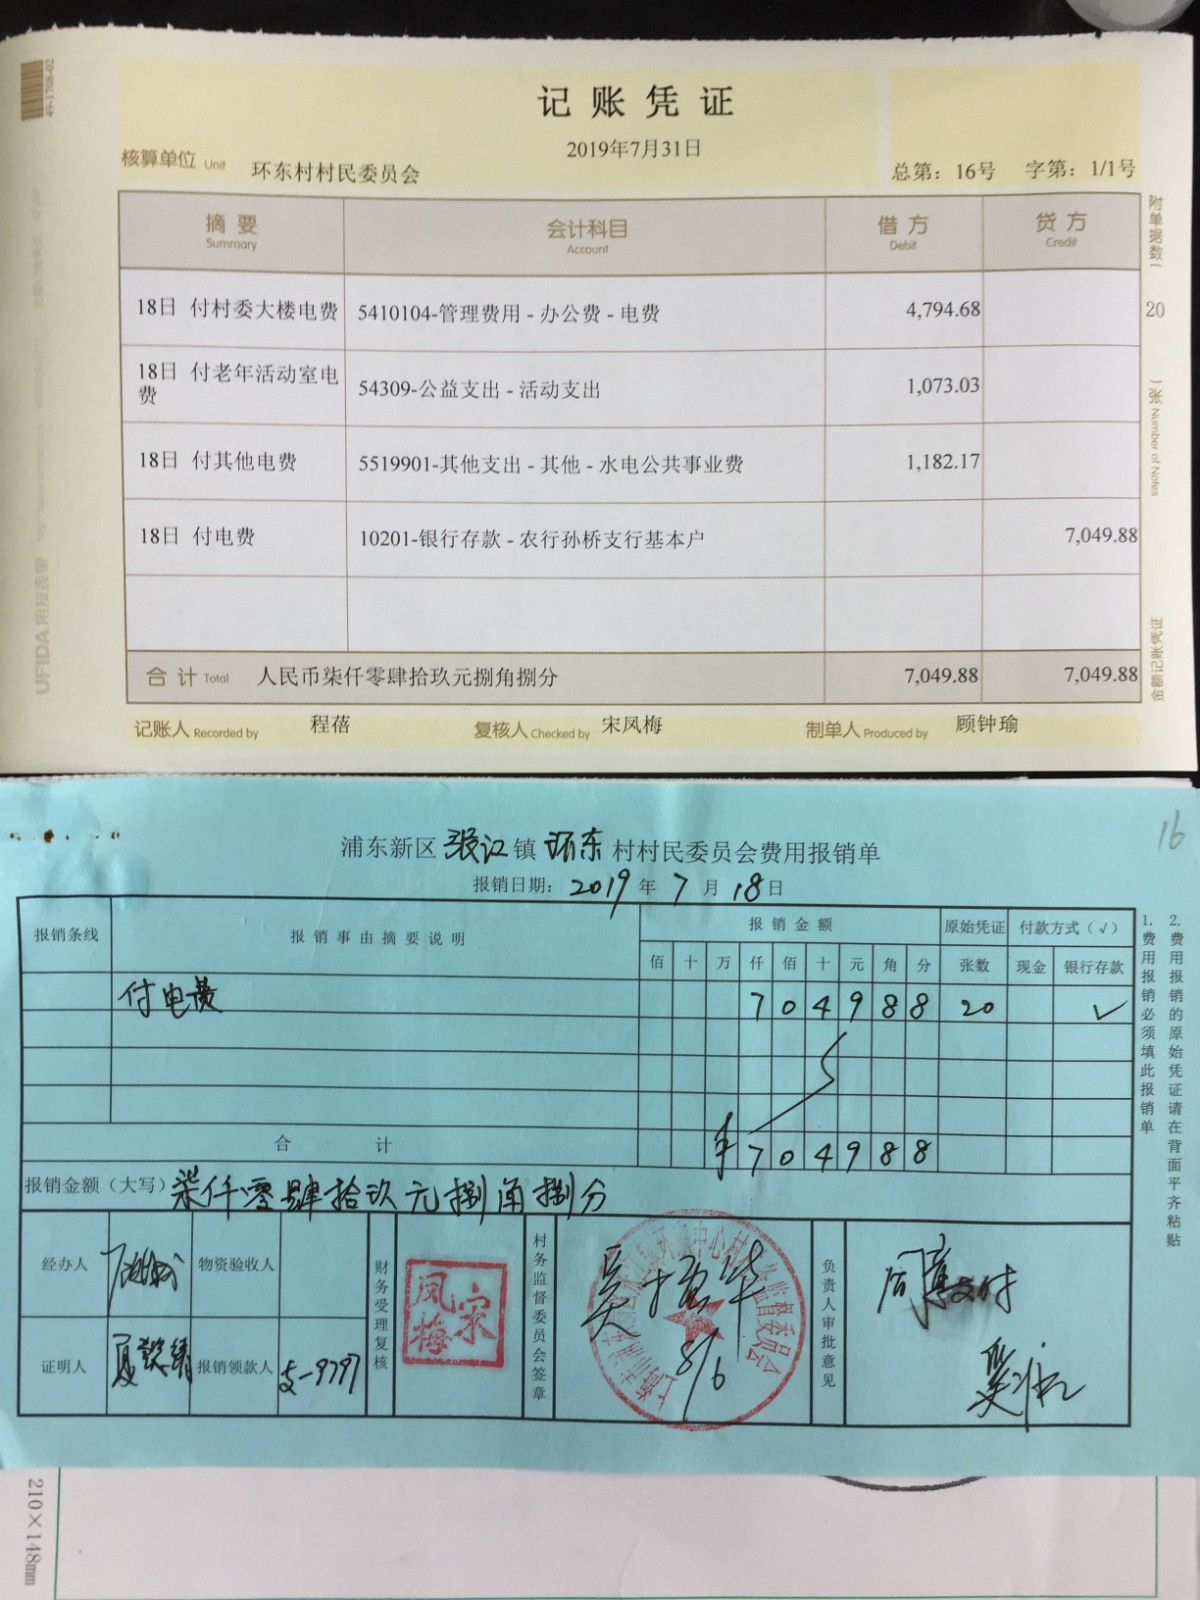 49-1708-02
记账凭证
2019年7月31日
核算单位 Unit 环东村村民委员会
总第：16号 字第：1/1号
摘要 会计科目 借方 贷方
Summary Account Debit Credit
附单据数（ 20 张）Number of Notes
18日 付村委大楼电费 5410104-管理费用 - 办公费 - 电费 4,794.68
18日 付老年活动室电费 54309-公益支出 - 活动支出 1,073.03
18日 付其他电费 5519901-其他支出 - 其他 - 水电公共事业费 1,182.17
18日 付电费 10201-银行存款 - 农行孙桥支行基本户 7,049.88
合计 Total 人民币柒仟零肆拾玖元捌角捌分 7,049.88 7,049.88
金额记账凭证
UFIDA 用友表单
记账人 Recorded by 程蓓 复核人 Checked by 宋凤梅 制单人 Produced by 顾钟瑜
16
浦东新区张江镇环东村村民委员会费用报销单
报销日期：2019年7月18日
报销条线 报销事由摘要说明 报销金额 原始凭证 付款方式（√）
佰 十 万 仟 佰 十 元 角 分 张数 现金 银行存款
付电费 7 0 4 9 8 8 20 ✓
合计 ¥ 7 0 4 9 8 8
报销金额（大写）柒仟零肆拾玖元捌角捌分
经办人 物资验收人
证明人 报销领款人 支-9797
财务受理复核
宋凤梅
村务监督委员会签章
8/6
负责人审批意见
同意支付
1.费用报销必须填此报销单
2.费用报销的原始凭证请在背面平齐粘贴
210×148mm